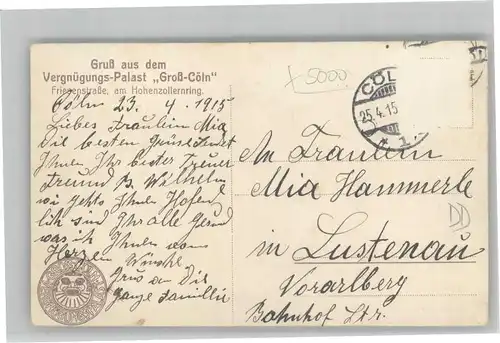 Gruß aus dem
Vergnügungs-Palast „Groß-Cöln"
Friesenstraße, am Hohenzollernring.
Cöln 23. 4. 1915
Liebes Fraulein Mia
Die besten Grüse sendet
Ihnen Ihr bester Treuer
Freund B. Wilhelm
wi gehts Ihnen Hofent
lich sind Ihr alle Gesund
was ich Ihnen vom
Herzen Winsche
Grus an Die
ganze Familli
+5000
CÖL
25.4.15
* 1.
An Fraulein
Mia Hammerle
in Lustenau
Vorarlberg
Bahnhof Str.